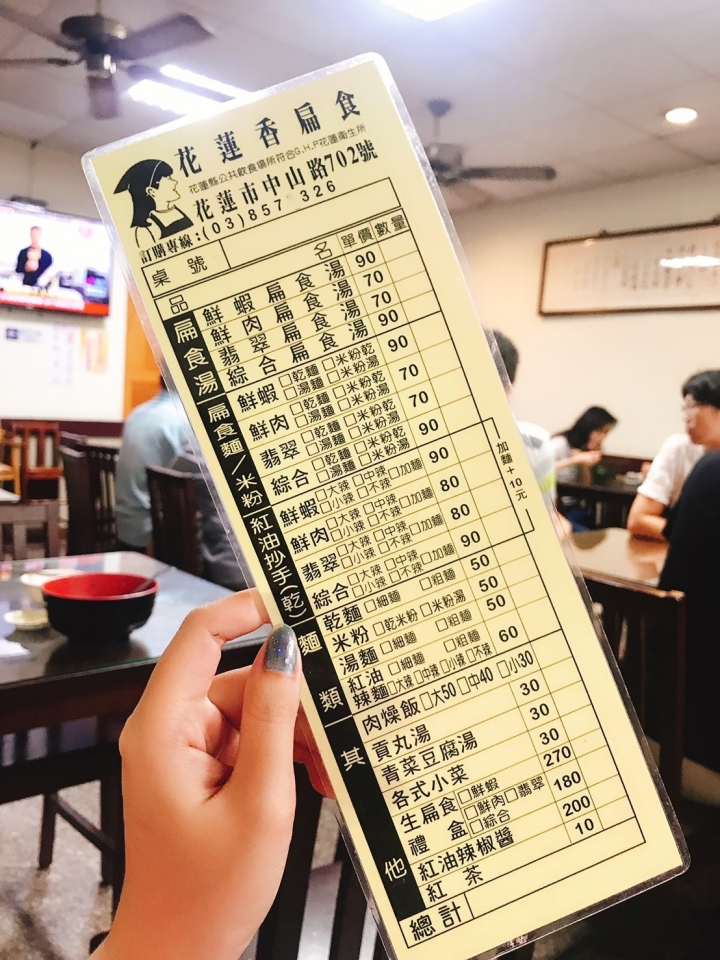 花蓮香扁食
花蓮縣公共飲食場所符合G.H.P花蓮衛生所
花蓮市中山路702號
訂購專線:(03)857 326
桌號
品名 單價 數量
扁食湯
鮮蝦扁食湯 90
鮮肉扁食湯 70
翡翠扁食湯 70
綜合扁食湯 90
扁食麵/米粉
鮮蝦 □乾麵 □米粉乾 90
□湯麵 □米粉湯
鮮肉 □乾麵 □米粉乾 70
□湯麵 □米粉湯
翡翠 □乾麵 □米粉乾 70
□湯麵 □米粉湯
綜合 □乾麵 □米粉乾 90
□湯麵 □米粉湯
紅油抄手(乾)
鮮蝦 □大辣 □中辣 □加麵 90
□小辣 □不辣
鮮肉 □大辣 □中辣 □加麵 80
□小辣 □不辣
翡翠 □大辣 □中辣 □加麵 80
□小辣 □不辣
綜合 □大辣 □中辣 □加麵 90
□小辣 □不辣
加麵+10元
麵類
乾麵 □細麵 □粗麵 50
米粉 □乾米粉 □米粉湯 50
湯麵 □細麵 □粗麵 50
紅油 □細麵 □粗麵 60
辣麵 □大辣 □中辣 □小辣 □不辣
其他
肉燥飯 □大50 □中40 □小30
貢丸湯 30
青菜豆腐湯 30
各式小菜 30
生扁食 □鮮蝦 270
禮盒 □鮮肉 □翡翠 180
□綜合 200
紅油辣椒醬
紅茶 10
總計